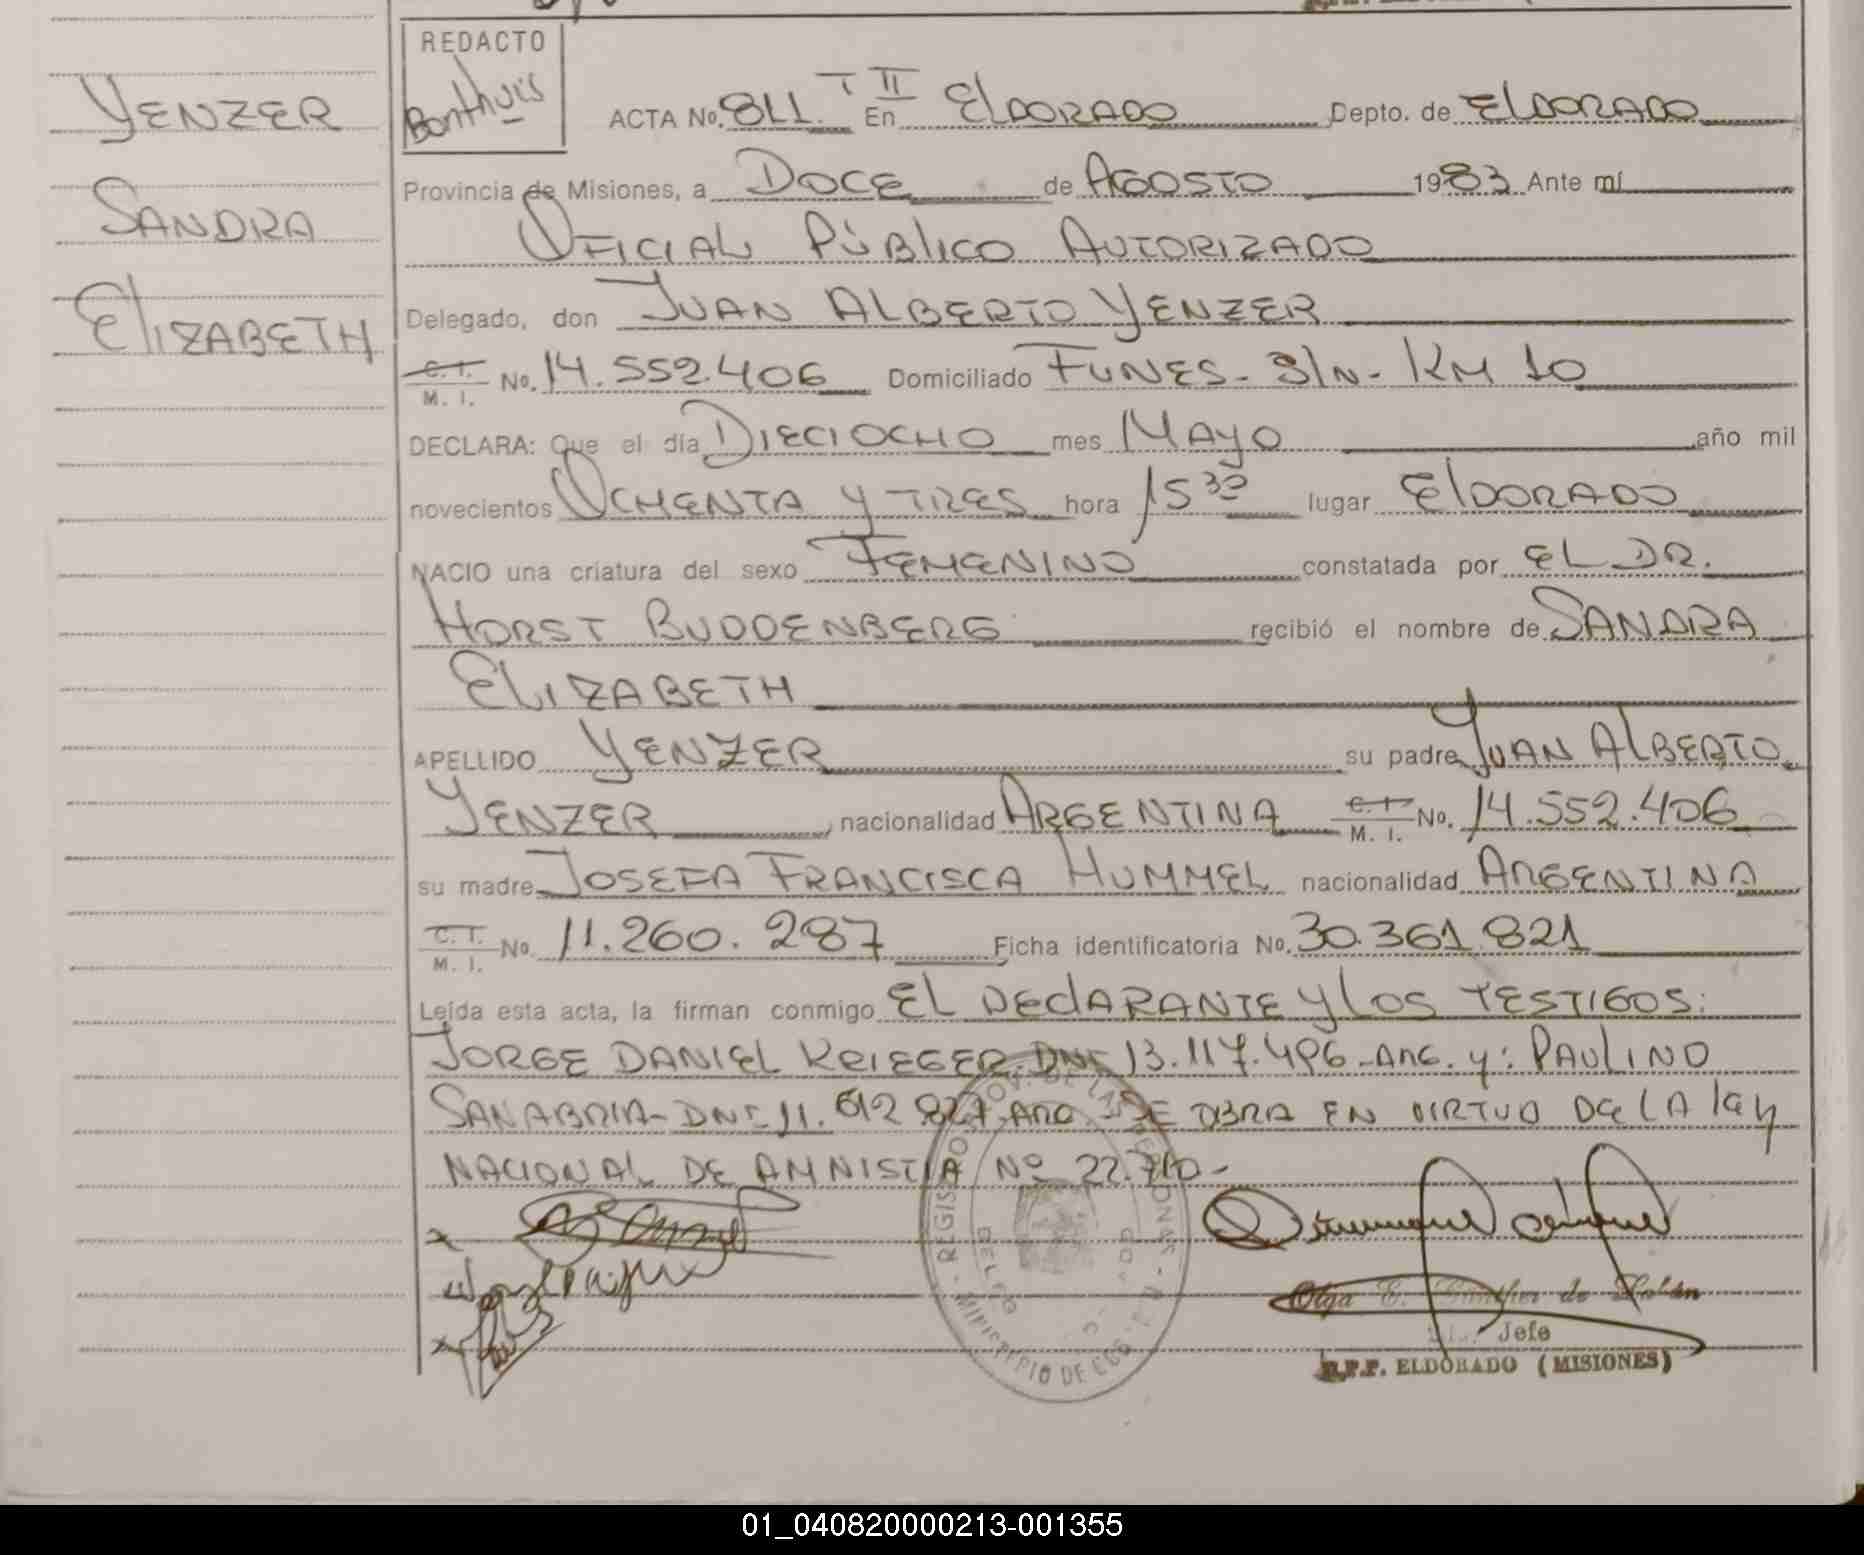 REDACTO
Bonthuis
YENZER
SANDRA
ELIZABETH
ACTA No. 811 T II En ELDORADO Depto. de ELDORADO
Provincia de Misiones, a DOCE de AGOSTO 1983 Ante mí
OFICIAL PÚBLICO AUTORIZADO
Delegado, don JUAN ALBERTO YENZER
C. I. M. I. No. 14.552.406 Domiciliado FUNES - S/N - KM 10
DECLARA: Que el día DIECIOCHO mes MAYO año mil
novecientos OCHENTA Y TRES hora 15 30 lugar ELDORADO
NACIO una criatura del sexo FEMENINO constatada por EL DR.
HORST BUDDENBERG recibió el nombre de SANDRA
ELIZABETH
APELLIDO YENZER su padre JUAN ALBERTO
YENZER, nacionalidad ARGENTINA C. I. M. I. No. 14.552.406
su madre JOSEFA FRANCISCA HUMMEL nacionalidad ARGENTINA
C. I. M. I. No. 11.260.287 Ficha identificatoria No. 30.361.821
Leída esta acta, la firman conmigo EL DECLARANTE Y LOS TESTIGOS:
JORGE DANIEL KRIEGER DNI 13.117.496 - ARG. y: PAULINO
SANABRIA - DNI 11.612.827 ARG SE OBRA EN VIRTUD DE LA LEY
NACIONAL DE AMNISTIA Nº 22.710 -
Olga E. Günther de
Jefe
R.P.P. ELDORADO (MISIONES)
01_040820000213-001355